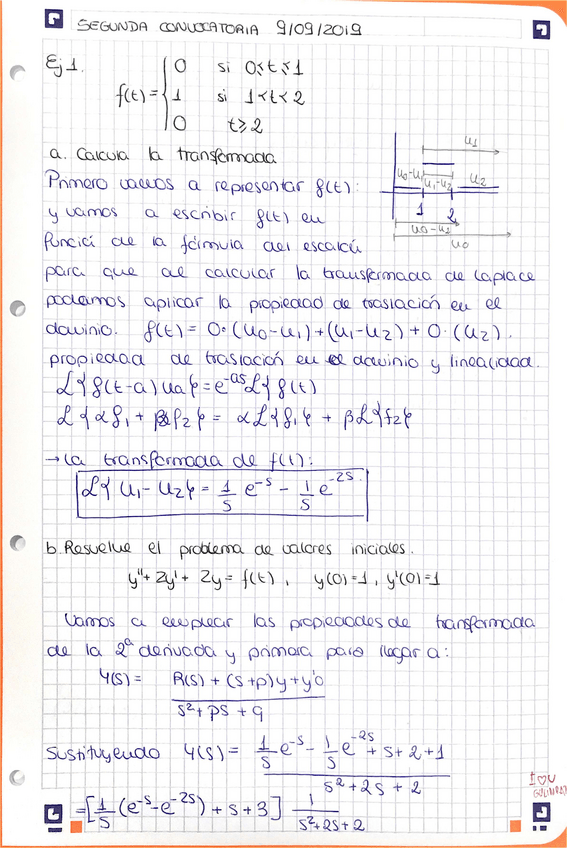 SEGUNDA CONVOCATORIA 9/09/2019
Ej 1.
f(t) = { 0 si 0≤t≤1
1 si 1<t<2
0 t≥2
a. Calcula la transformada
Primero vamos a representar f(t):
y vamos a escribir f(t) en
funció de la fórmula del escalón
para que al calcular la transformada de Laplace
podamos aplicar la propiedad de traslación en el
dominio. f(t) = 0·(u0-u1)+(u1-u2) + 0·(u2).
propiedad de traslación en el dominio y linealidad.
L{f(t-a) ua} = e^-as L{f(t)
L{αf1 + βf2} = αL{f1} + βL{f2}
u1
u0-u1
u1-u2
u2
1 2
u0-u1
u0
→ La transformada de f(t):
L{u1-u2} = 1/s e^-s - 1/s e^-2s.
b. Resuelve el problema de valores iniciales.
y''+2y'+2y = f(t), y(0)=1, y'(0)=1
Vamos a emplear las propiedades de transformada
de la 2ª derivada y primera para llegar a:
Y(s) = R(s) + (s+p)y + y'0 / s²+ps+q
Sustituyendo Y(s) = 1/s e^-s - 1/s e^-2s + s+2+1 / s²+2s+2
= [1/s (e^-s - e^-2s) + s+3] 1/s²+2s+2
I ♡ U